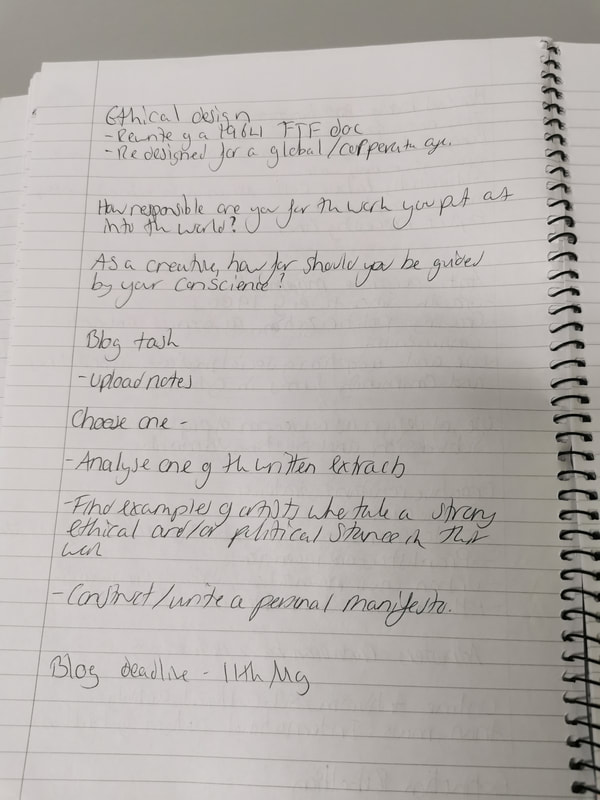 Ethical design
- Rewrite of a 1964 FTF doc
- Redesigned for a global/corperate age.
How responsible are you for the work you put out
into the world?
As a creative, how far should you be guided
by your conscience?
Blog task
- Upload notes
Choose one -
- Analyse one of the written extracts
- Find examples of artists who take a strong
ethical and/or political stance in their
work
- Construct/write a personal manifesto.
Blog deadline - 11th